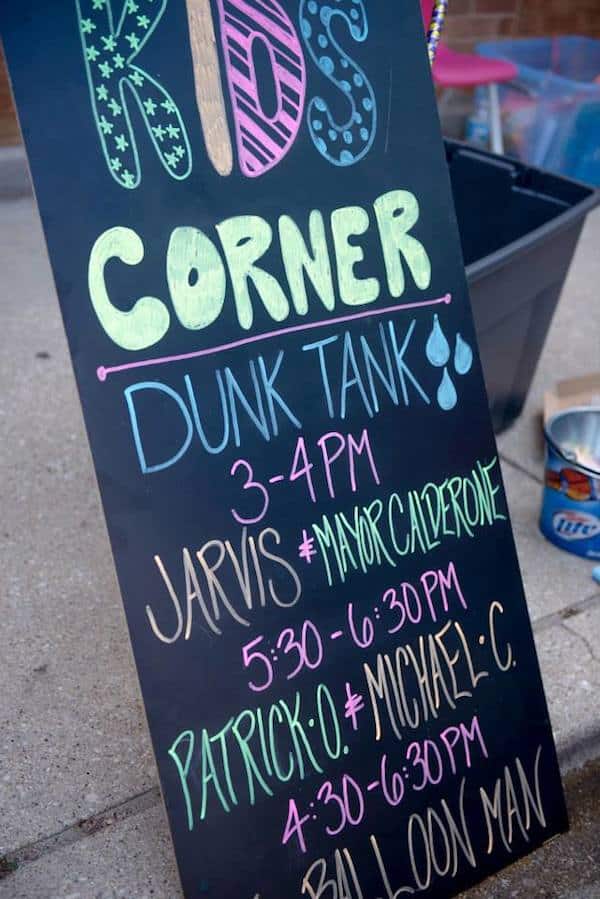 KIDS
CORNER
DUNK TANK
3-4PM
JARVIS & MAYOR CALDERONE
5:30-6:30PM
PATRICK·O. & MICHAEL·C.
4:30-6:30PM
BALLOON MAN
Lite